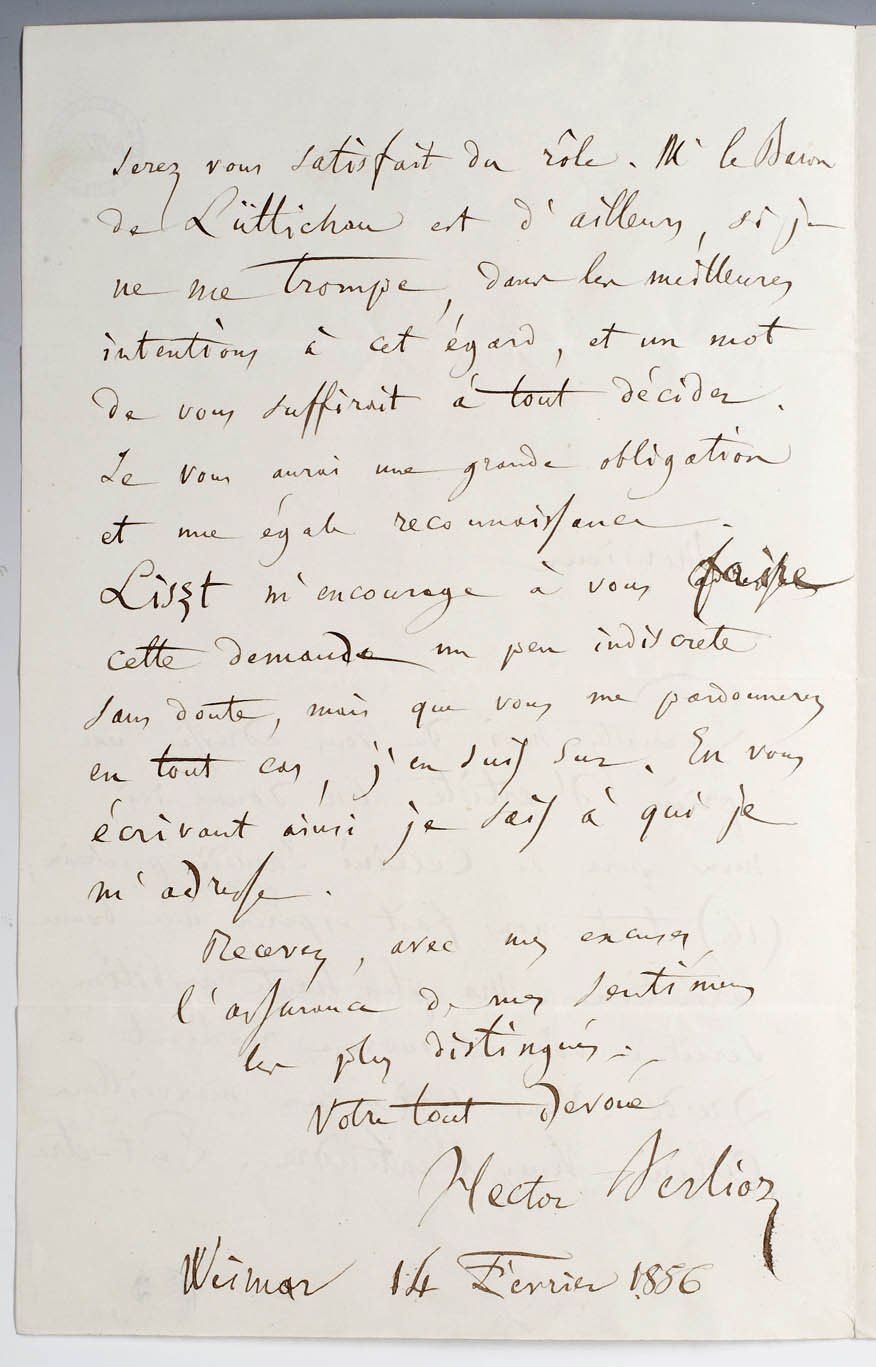 serez vous satisfait du rôle. Mr le Baron
de Lüttichau est d'ailleurs, si je
ne me trompe, dans les meilleures
intentions à cet égard, et un mot
de vous suffirait à tout décider.
Je vous aurai une grande obligation
et une égale reconnaissance.
Liszt m'encourage à vous faire
cette demande un peu indiscrete
sans doute, mais que vous me pardonnerez
en tout cas, j'en suis sur. En vous
écrivant ainsi je sais à qui je
m'adresse.
Recevez, avec mes excuses,
l'assurance de mes sentimens
les plus distingués.
Votre tout devoué
Hector Berlioz
Weimar 14 Février 1856